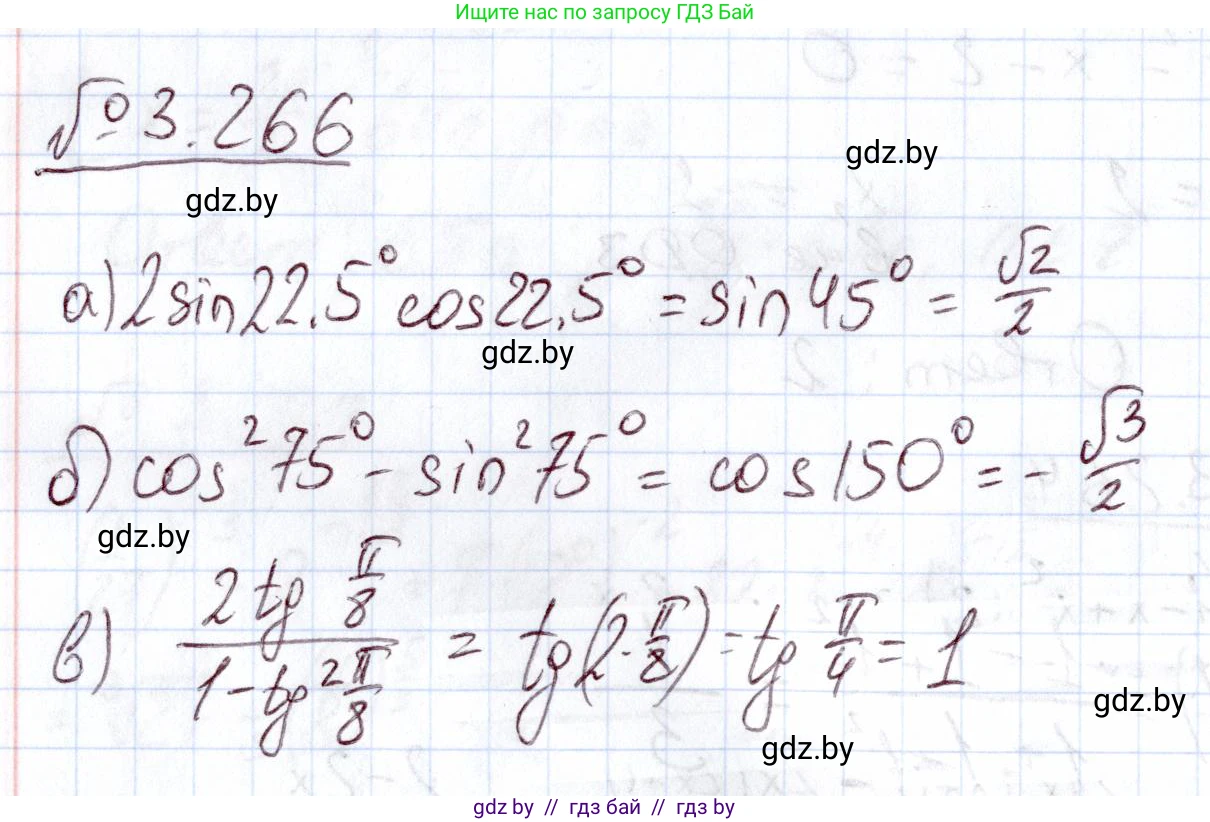 Ищите нас по запросу ГДЗ Бай
№ 3.266
gdz.by
gdz.by
а) 2 sin 22,5° cos 22,5° = sin 45° = √2/2
gdz.by
б) cos² 75° - sin² 75° = cos 150° = - √3/2
gdz.by
в) (2 tg π/8)/(1 - tg² π/8) = tg (2 · π/8) = tg π/4 = 1
gdz.by
gdz.by
gdz by // гдз бай // гдз by